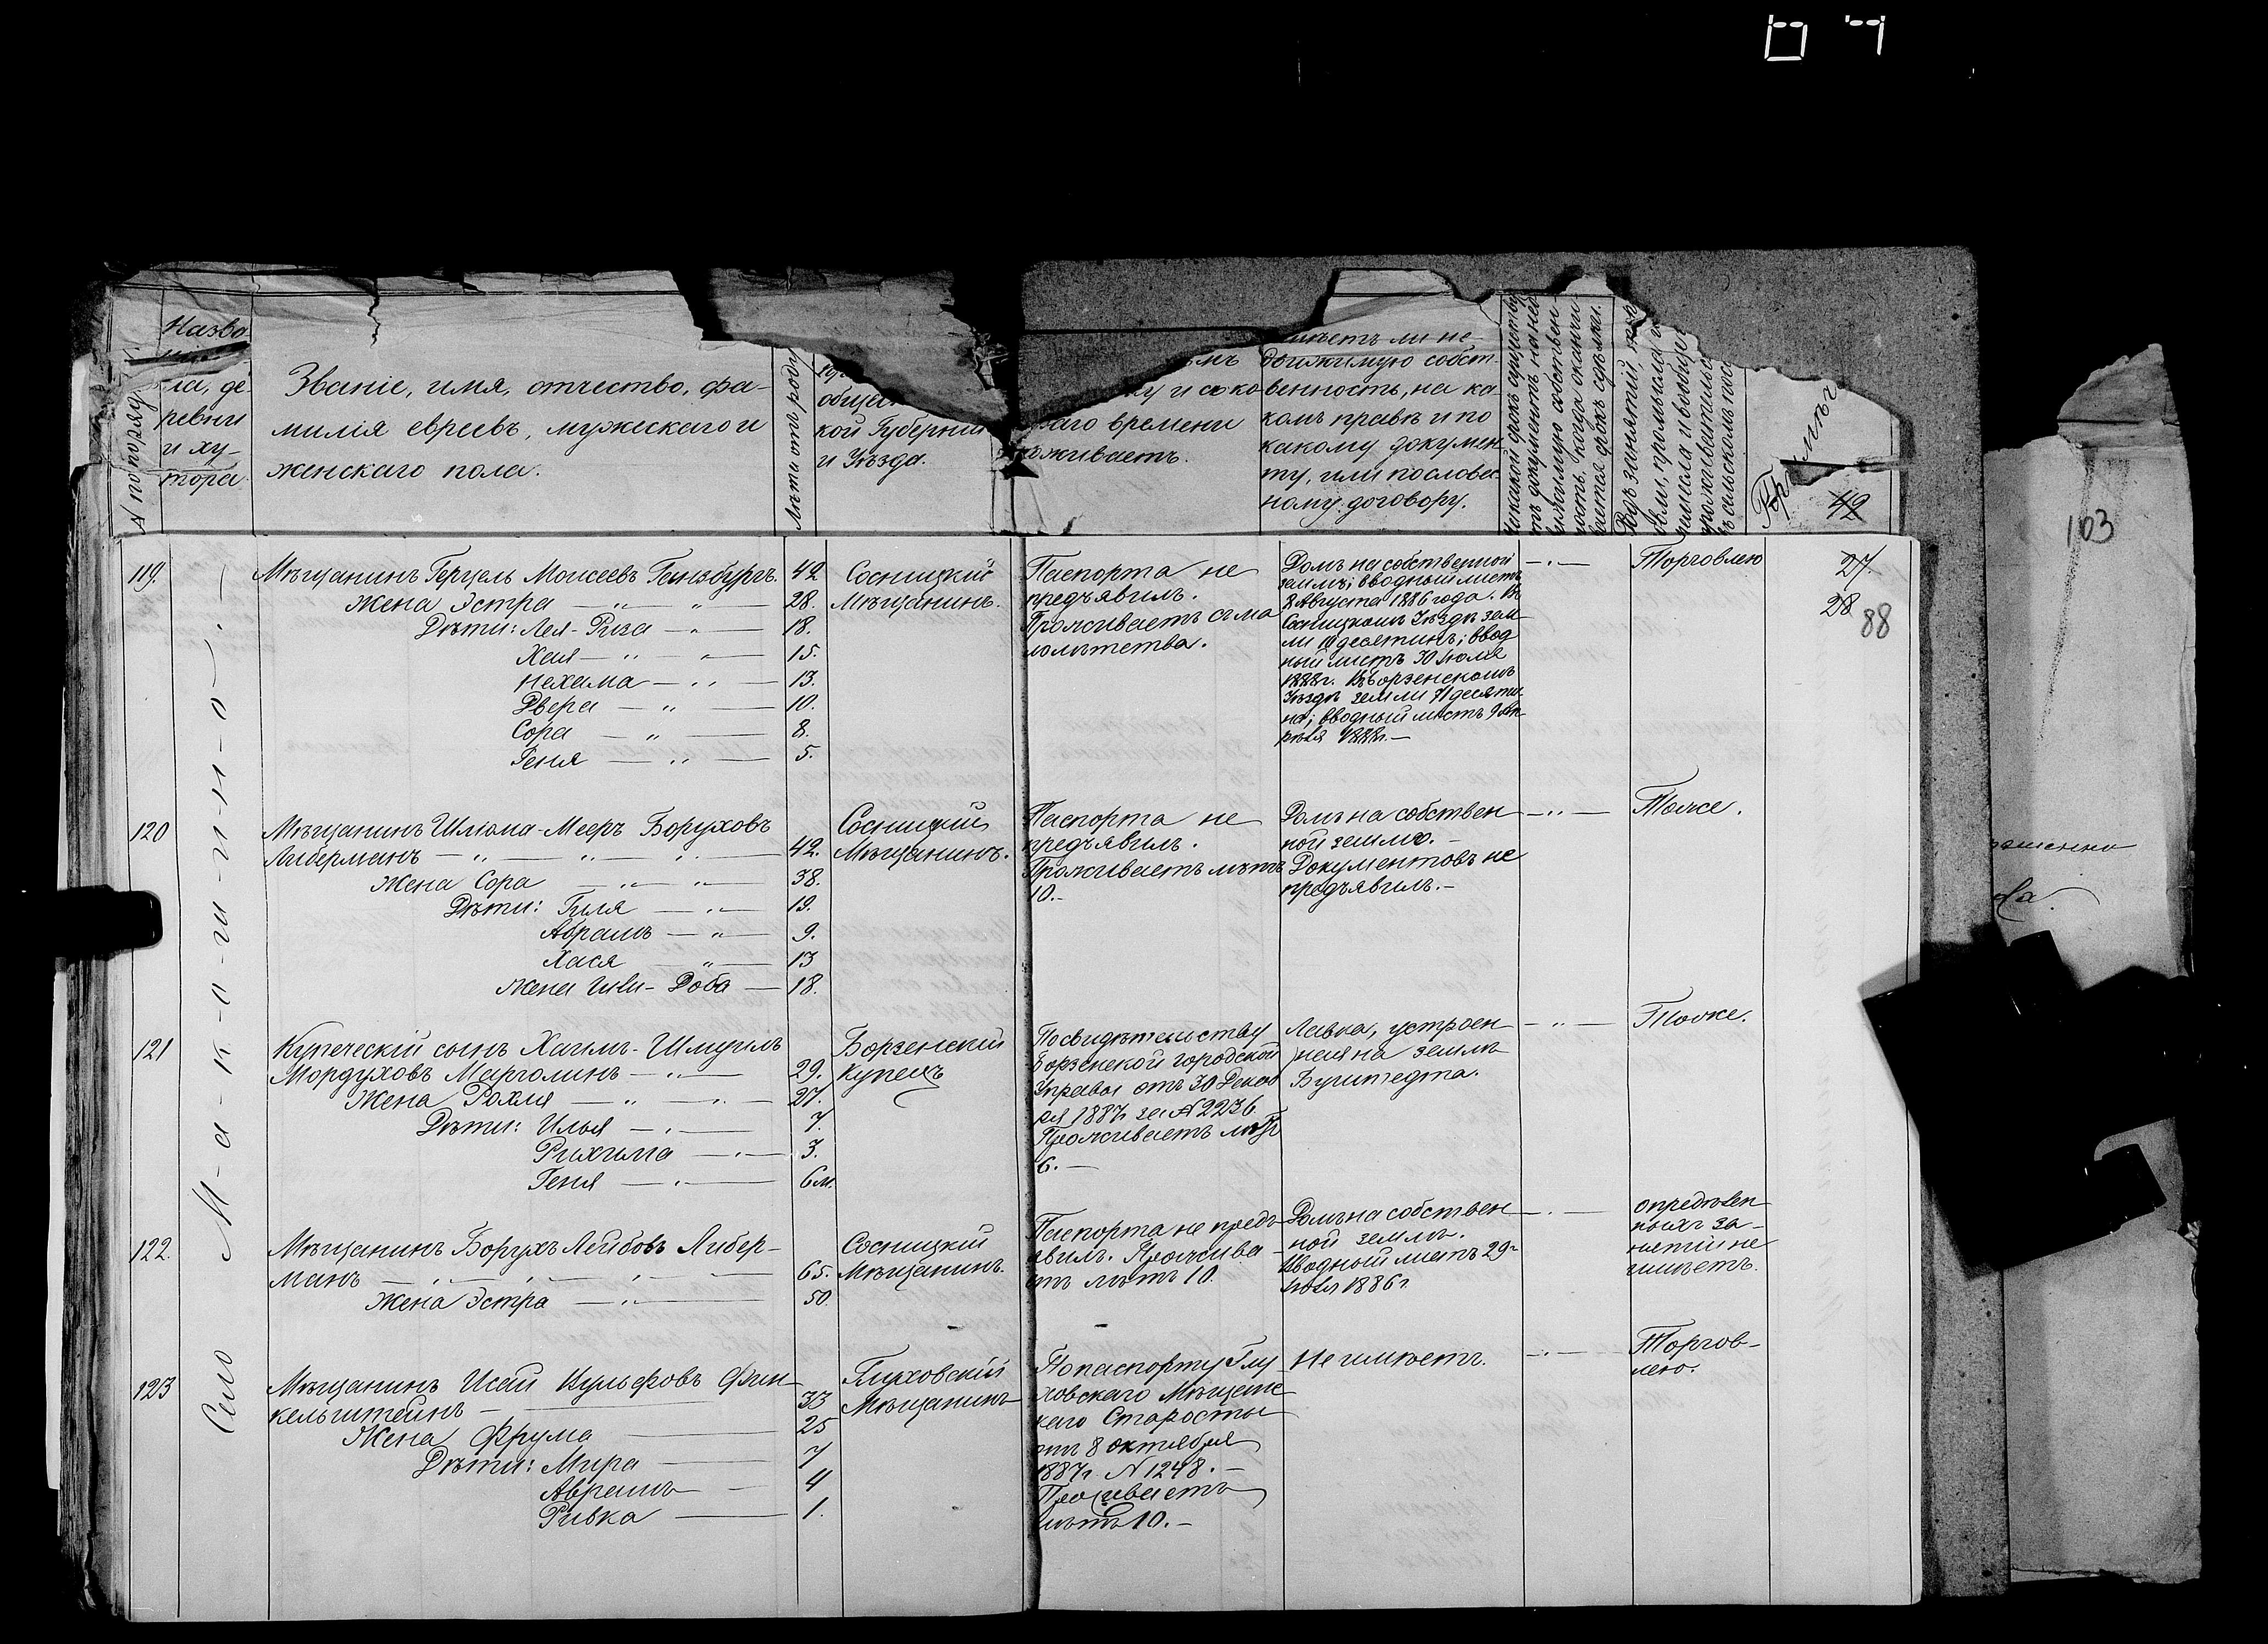 Назва
ла, де
ревни
и ху-
тора
Званіе, имя, отчество, фа-
милія евреевъ, мужескаго и
женскаго пола.
Лѣта отъ роду
общес
кой Губерніи
и Уѣзда.
раго времени
оживаетъ.
имѣетъ ли не-
движимую собст-
венность, на ка-
комъ правѣ и по
какому докумен
ту, или по словес
ному договору.
42
103
Село М-а-к-о-ш-и-н-о-.-
119.
Мѣщанинъ Герцель Моисеевъ Гинзбургъ. 42
Жена Эстра — " — " — 28.
Дѣти: Лея-Риза — " — 18.
Хая — " — " — 15.
Нехама — " — 13.
Двера — " — 10.
Сора — " — 8.
Геня — " — 5.
Сосницкій
Мѣщанинъ.
Паспорта не
предъявилъ.
Проживаетъ съ ма
лолѣтства.
Домъ на собственной
землѣ; вводный листъ
8 Августа 1886 года. Въ
Сосницкомъ Уѣздѣ зем-
ли 10 десятинъ; ввод
ный листъ 30 Іюля
1882г. Въ Борзенскомъ
Уѣздѣ земли 71 десяти
на; вводный листъ 9 Ап
рѣля 1888г.—
— " —
Торговлею
27.
28
88
120
Мѣщанинъ Шліома-Мееръ Боруховъ
Либерманъ — " — " — " — 42.
Жена Сора — " — " — 38.
Дѣти: Гиля — " — 19.
Абрамъ — " — 9.
Хася — " — 13
Жена Гили-Доба — 18.
Сосницкій
Мѣщанинъ.
Паспорта не
предъявилъ.
Проживаетъ лѣтъ
10.-
Домъ на собствен
ной землѣ.-
Документовъ не
предъявилъ.-
— " —
Тоже.
121
Купеческій сынъ Хаимъ-Шмуилъ
Мордуховъ Марголинъ — " — 29.
Жена Рохля — " — " — 27.
Дѣти: Илья — " — 7.
Рихима — " — 3.
Геня — " — 6м.
Борзенскій
Купецъ
По свидѣтельству
Борзенской городской
Управы отъ 30 Декаб
ря 1887г за N 2236
Проживаетъ лѣтъ
6.—
Лавка, устроен
ная на землѣ
Бушпедта.
— " —
Тоже.
122.
Мѣщанинъ Борухъ Лейбовъ Либер-
манъ — " — " — " — 65.
Жена Эстра — " — 50.
Сосницкій
Мѣщанинъ.
Паспорта не предъ-
явилъ. Прожива-
етъ лѣтъ 10.
Домъ на собствен
ной землѣ.
Вводный листъ 29-
Іюля 1886г
— " —
опредѣлен-
ныхъ за-
нятій не
имѣетъ.
123
Мѣщанинъ Исай Вульфовъ Фин
кельштейнъ — 33
Жена Фрума — 25
Дѣти: Мира — 7
Авраамъ — 4
Ривка — 1.
Глуховскій
Мѣщанинъ
По паспорту Глу
ховскаго Мѣщанс
каго Старосты
отъ 8 октября
1887г. N 1248.-
Проживаетъ
лѣтъ 10.-
Не имѣетъ.
— " —
Торгов-
лею.